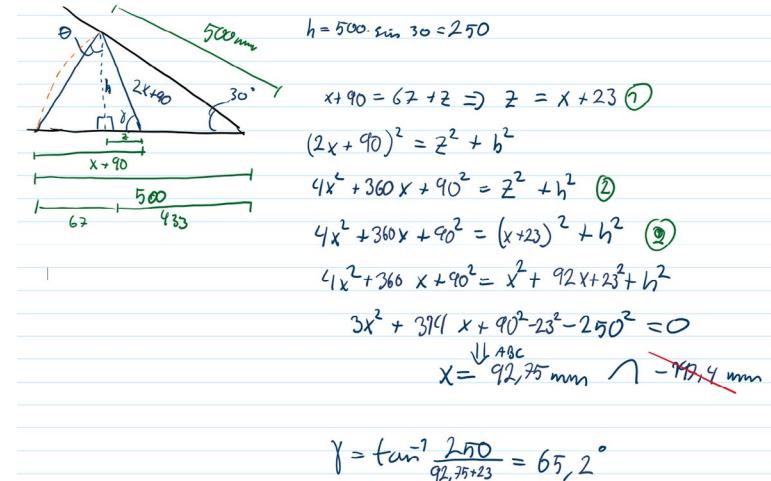 h = 500 · sin 30 = 250
500mm
θ
h
2x+90
30°
γ
z
x+90
500
67
433
x+90 = 67 + z ⇒ z = x+23 ①
(2x+90)² = z² + h²
4x² + 360x + 90² = z² + h² ②
4x² + 360x + 90² = (x+23)² + h²
4x² + 360x + 90² = x² + 92x + 23² + h²
3x² + 314x + 90² - 23² - 250² = 0
⇓ ABC
x = 92,75 mm ∩ -197,4 mm
γ = tan⁻¹ 250/92,75+23 = 65,2°